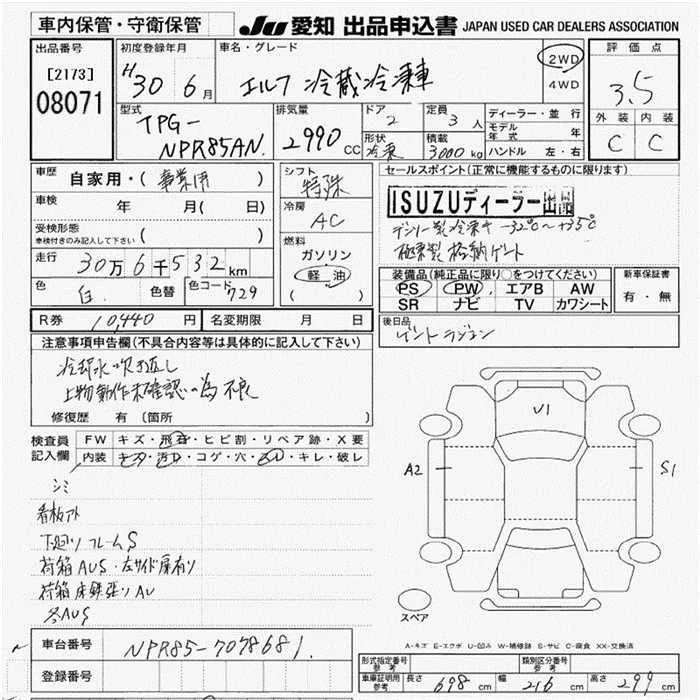 車内保管・守衛保管
JU 愛知 出品申込書 JAPAN USED CAR DEALERS ASSOCIATION
出品番号
[2173]
08071
初度登録年月
H30年6月
車名・グレード
エルフ 冷蔵冷凍車
2WD
4WD
評価点
3.5
外装 内装
C C
型式
TPG-
NPR85AN
排気量
2990 CC
ドア
2
定員
3人
形状
冷凍
積載
3000kg
ディーラー・並行
モデル年式 年
ハンドル 左・右
車歴
自家用・(事業用)
車検
年 月( 日)
受検形態
車検付きのみ記入して下さい ( )
走行
30万6千532km
色
白
色替
色コード
729
シフト
特殊
冷房
AC
燃料
ガソリン
軽油
( )
セールスポイント(正常に機能するものに限ります)
ISUZUディーラー出品
デンソー製冷凍機 -32℃~+35℃
極東製 格納ゲート
装備品(純正品に限り○をつけてください)
PS PW エアB AW
SR ナビ TV カワシート
新車保証書
有・無
R券 10,440円
名変期限 月 日
後日品
ゲートラジコン
注意事項申告欄(不具合内容等は具体的に記入して下さい)
冷却水吹き返し
上物動作未確認の為不良
修復歴 有(箇所
検査員
記入欄
FW キズ・飛石・ヒビ割・リペア跡・X要
内装 キズ・汚レ・コゲ・穴・スレ・キレ・破レ
シミ
看板アト
下廻り フレームS
荷箱AUS・左サイド扉有り
荷箱床鉄張りAU
冬AUS
V1
A2
S1
スペア
A-キズ E-エクボ U-凹み W-補修跡 S-サビ C-腐食 XX-交換済
車台番号
NPR85-7078681
登録番号
形式指定番号
参考
類別区分番号
参考
車庫証明用
参考
長さ 698cm 幅 216cm 高さ 299cm